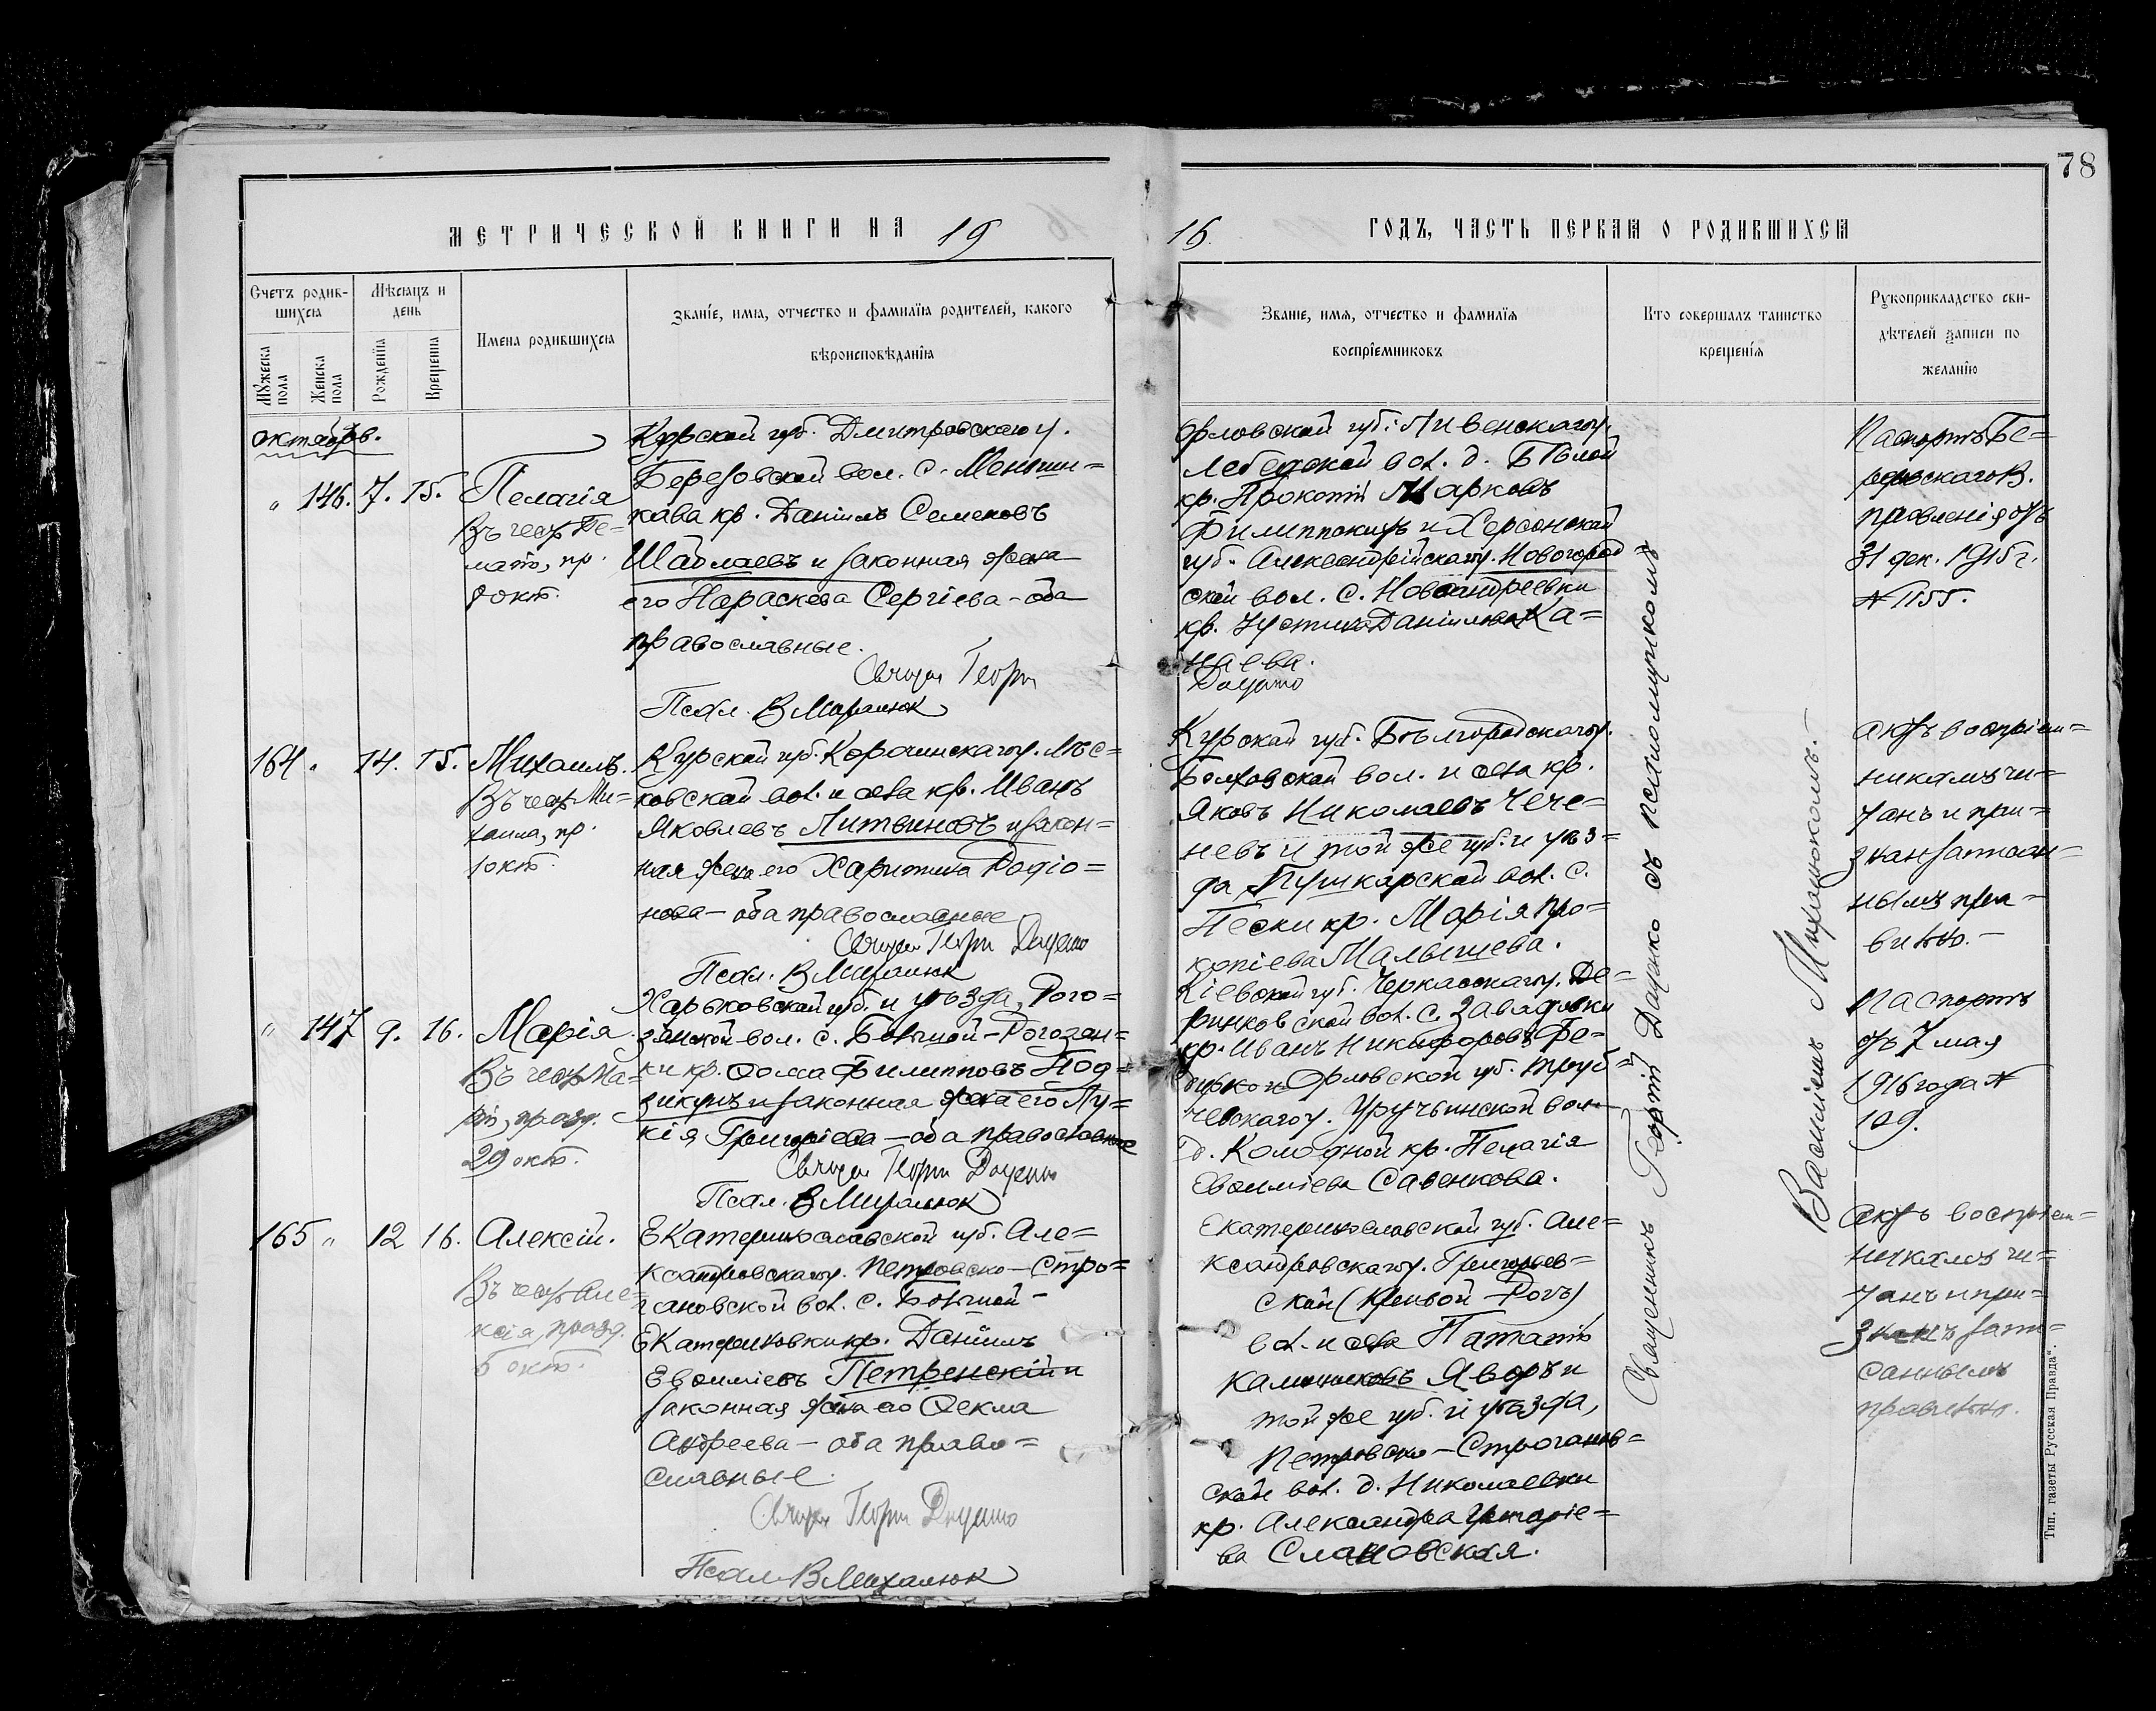 78
МЕТРИЧЕСКОЙ КНИГИ НА 19
16. ГОДЪ, ЧАСТЬ ПЕРВАЯ О РОДИВШИХСЯ
Счетъ родив-
шихся
Мѣсяцъ и
день
Мужеска
пола
Женска
пола
Рожденія
Крещенія
Имена родившихся
Званіе, имя, отчество и фамилія родителей, какого
вѣроисповѣданія
Званіе, имя, отчество и фамилія
воспріемниковъ
Кто совершалъ таинство
крещенія
Рукоприкладство сви-
дѣтелей записи по
желанію
октябрь.
" 146. 7. 15. Пелагія
Въ честь Пе-
лагіи, пр.
8 окт.
Курской губ. Дмитровскаго у.
Березовской вол. с. Меньши-
кова кр. Даніилъ Семеновъ
Шаблаевъ и законная жена
его Параскева Сергіева - оба
православные.
Свящ. Георгій
Псал. В Михалюк
Орловской губ. Ливенскаго у.
Лебедской вол. д. Бѣлой
кр. Прокопій Марковъ
Филиппокицъ и Херсонской
губ. Александрійскаго у. Новогород
ской вол. с. Новоандреевки
кр. Устинія Даніилова Ка-
наева.
Даценко
Паспортъ Бе-
резовскаго В.
правленія отъ
31 дек. 1915 г.
№ 1155.
164 " 14. 15. Михаилъ.
Въ честь Ми-
хаила, пр.
1 окт.
Курской губ. Корочинскаго у. Мѣс-
ковской вол. и села кр. Иванъ
Яковлевъ Литвиновъ и закон-
ная жена его Харитина Родіо-
нова - оба православные
Свящ. Георгій Даценко
Псал. В Михалюк
Курской губ. Бѣлгородскаго у.
Болховской вол. и села кр.
Яковъ Николаевъ Чече-
невъ и той же губ. и уѣз-
да, Пушкарской вол. с.
Пески кр. Марія Про-
копіева Малышева.
Актъ воспріем-
никамъ чи-
танъ и при-
знан записан-
нымъ пра-
вильно. -
" 147 9. 16. Марія.
Въ честь Ма-
ріи, празд.
29 окт.
Харьковской губ. и уѣзда, Рого-
занской вол. с. Большой-Рогозан-
ки кр. Ѳома Филипповъ Под-
зикунъ и законная жена его Лу-
кія Григоріева - оба православные
Свящ. Георгій Даценко
Псал. В Михалюк
Кіевской губ. Черкасскаго у. Де-
ринковской вол. с. Завадовки
кр. Иванъ Никифоровъ Фе-
дирко и Орловской губ. Труб-
чевскаго у. Уручьинской вол.
д. Колодной кр. Пелагія
Евѳиміева Савенкова.
Паспортъ
отъ 7 мая
1916 года №
109.
165 " 12 16. Алексій.
Въ честь Але-
ксія, празд.
5 окт.
Екатеринославской губ. Але-
ксандровскаго у. Петровско-Стро-
гановской вол. с. Большой-
Екатериновки кр. Даніилъ
Евѳиміевъ Петренскій и
законная жена его Ѳекла
Андреева - оба право-
славные.
Свящ. Георгій Даценко
Псал. В Михалюк
Екатеринославской губ. Але-
ксандровскаго у. Григорьев-
ской (Кривой-Рогъ)
вол. и села Патапій
Калиниковъ Яворъ и
той же губ. и уѣзда,
Петровско-Строганов-
ской вол. д. Николаевки
кр. Александра Григоріе-
ва Слановская.
Актъ воспріем-
никамъ чи-
танъ и при-
знанъ запи-
саннымъ
правильно.
Священникъ Георгій Даценко съ псаломщикомъ
Василіемъ Михалюкомъ.
Тип. газеты Русская Правда“.